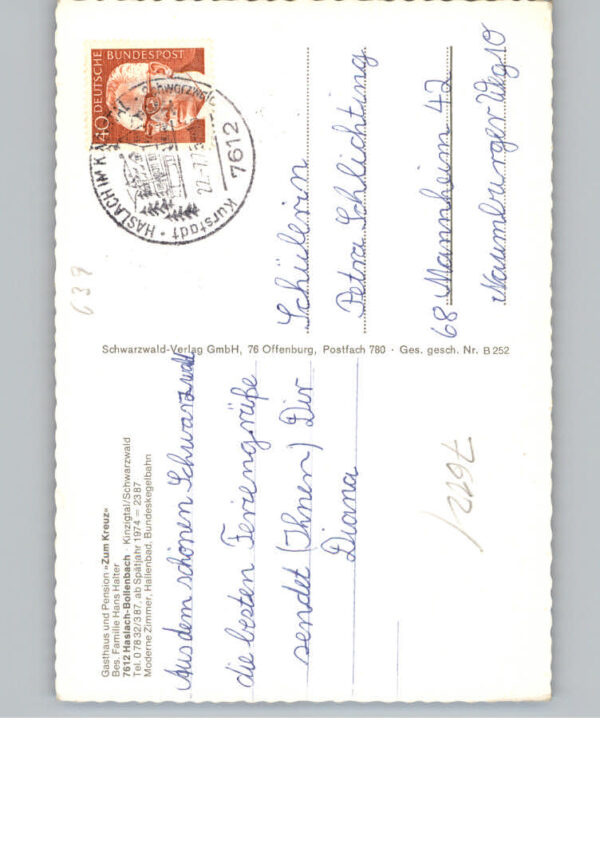 Gasthaus und Pension »Zum Kreuz«
Bes. Familie Hans Halter
7612 Haslach-Bollenbach · Kinzigtal/Schwarzwald
Tel. 0 78 32/3 87, ab Spätjahr 1974 = 23 87
Moderne Zimmer, Hallenbad, Bundeskegelbahn
Aus dem schönen Schwarzwald
die besten Feriengrüße
sendet (Ihnen) Dir
Diana
Schwarzwald-Verlag GmbH, 76 Offenburg, Postfach 780 · Ges. gesch. Nr. B 252
40 DEUTSCHE BUNDESPOST
7612 HASLACH IM
Kurstadt
Schülerin
Petra Schlichting
68 Mannheim 42
Naumburger Weg 10
639